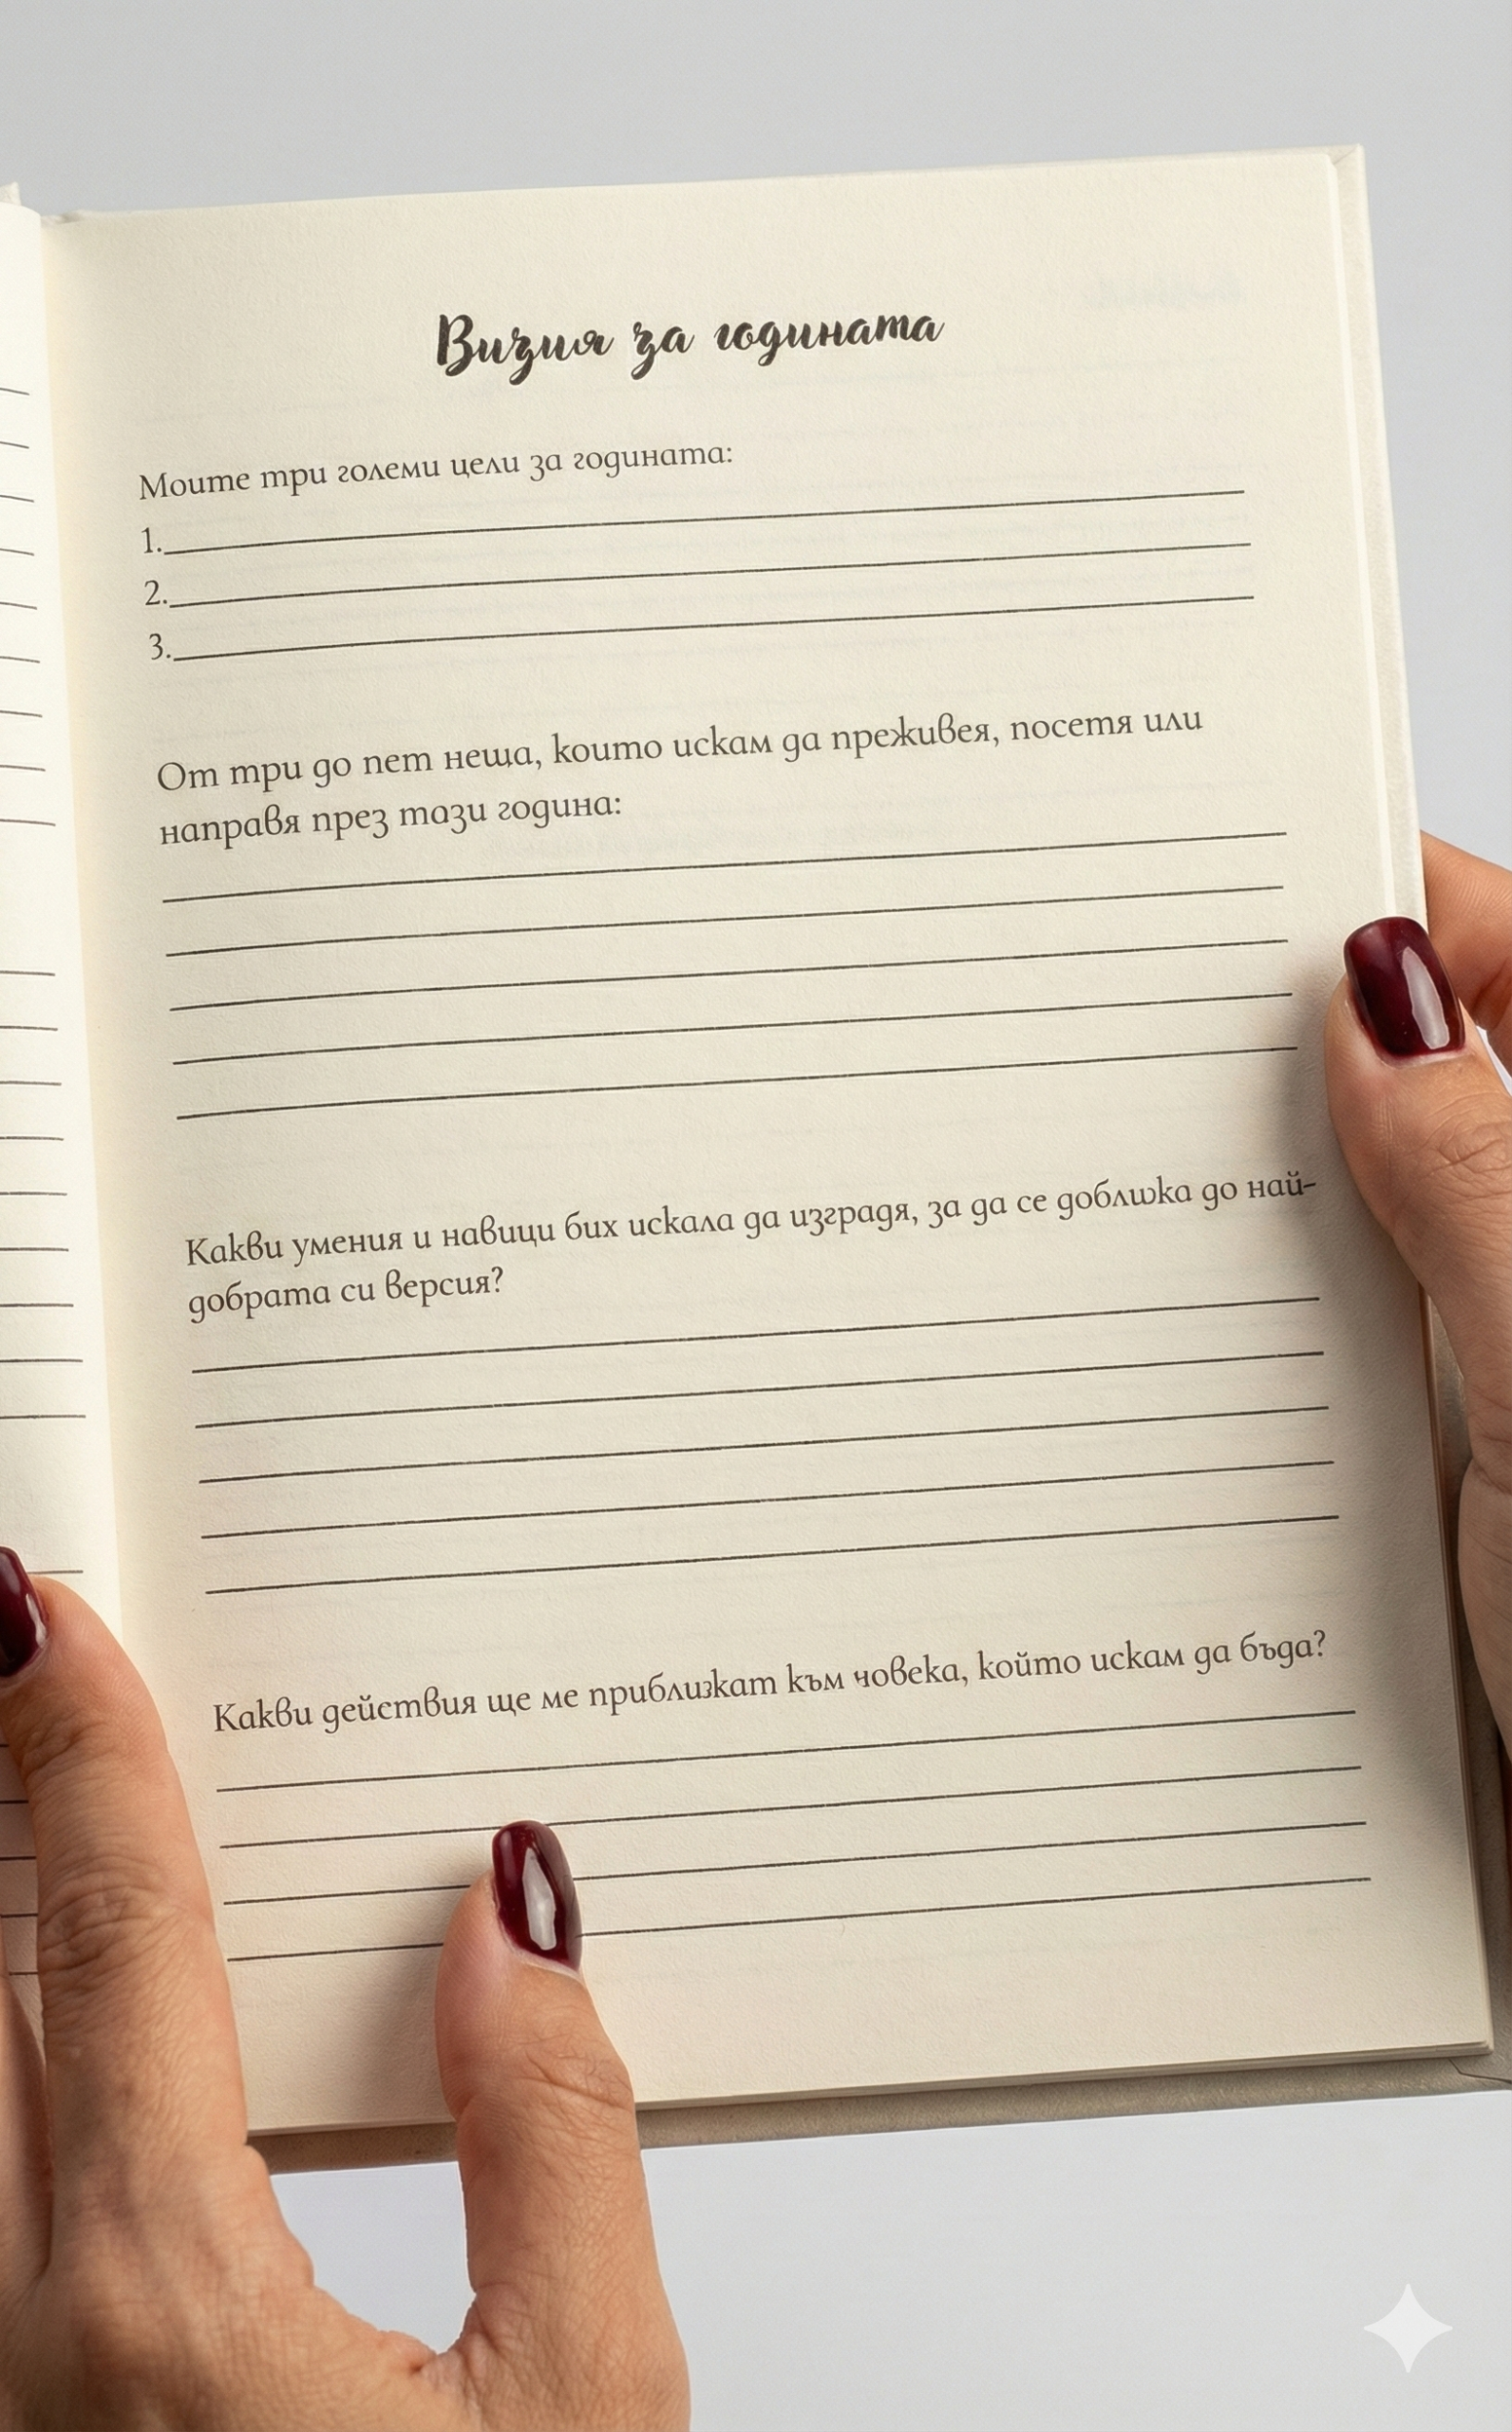 Визия за годината
Моите три големи цели за годината:
1.
2.
3.
От три до пет неща, които искам да преживея, посетя или
направя през тази година:
Какви умения и навици бих искала да изградя, за да се доближа до най-
добрата си версия?
Какви действия ще ме приближат към човека, който искам да бъда?